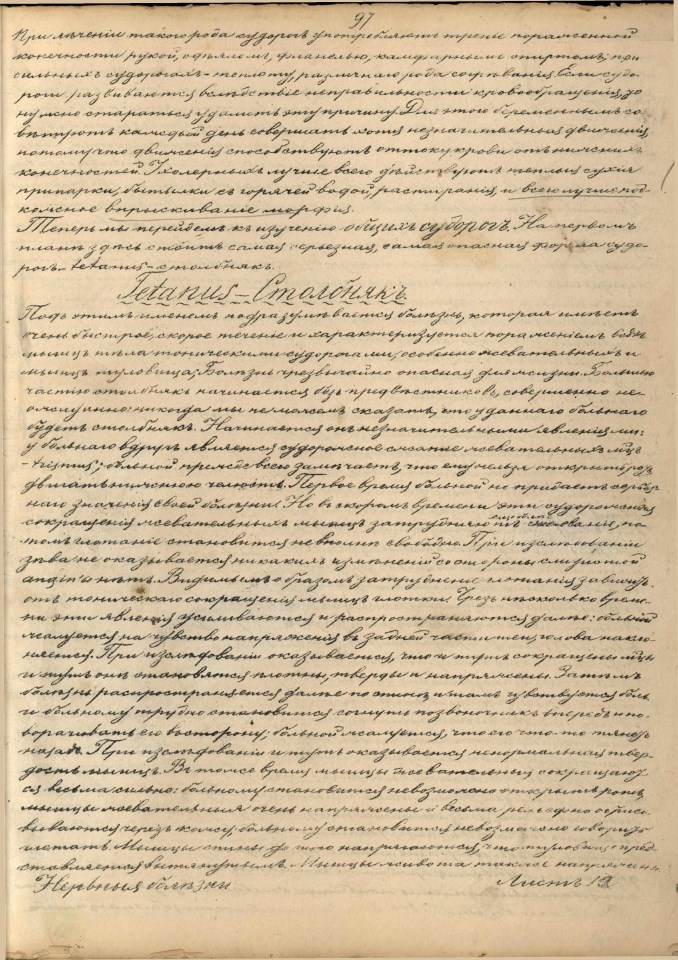 97
При лѣченіи такого рода судорогъ употребляютъ треніе пораженной
конечности рукой, одѣяломъ, фланелью, камфарнымъ спиртомъ; при
сильныхъ судорогахъ - теплоту, различнаго рода согрѣванія. Если судо-
роги развиваются вслѣдствіе неправильности кровообращенія, то
нужно стараться удалить эту причину. Для этого беременнымъ со-
вѣтуютъ каждый день совершать хотя незначительныя движенія,
потому что движенія способствуютъ оттоку крови отъ нижнихъ
конечностей. У холерныхъ лучше всего дѣйствуютъ теплыя сухія
припарки, бутылки съ горячей водой, растиранія, и всего лучше под-
кожное впрыскиваніе морфія.
Теперь мы перейдемъ къ изученію общихъ судорогъ. На первомъ
планѣ здѣсь стоитъ самая серьезная, самая опасная форма судо-
рогъ - tetanus - столбнякъ.
Tetanus - Столбнякъ.
Подъ этимъ именемъ подразумѣвается болѣзнь, которая имѣетъ
очень быстрое, скорое теченіе и характеризуется пораженіемъ всѣхъ
мышцъ тѣла тоническими судорогами, особенно жевательныхъ и
мышцъ туловища; Болѣзнь чрезвычайно опасная для жизни. Большею
частію столбнякъ начинается безъ предвѣстниковъ, совершенно не-
ожиданно: никогда мы не можемъ сказать, что у даннаго больнаго
будетъ столбнякъ. Начинается онъ незначительными явленіями:
у больнаго вдругъ является судорожное сжатіе жевательныхъ мышцъ
- trismus; больной прежде всего замѣчаетъ, что ему нельзя открыть ротъ,
двигать нижнюю челюсть. Первое время больной не придаетъ серьез-
наго значенія своей болѣзни. Но въ скоромъ времени эти судорожныя
сокращенія жевательныхъ мышцъ затрудняютъ жеваніе, по-
томъ глотаніе становится не вполнѣ свободно. При изслѣдованіи
зѣва не оказывается никакихъ измѣненій со стороны слизистой
angin'ы нѣтъ. Видимымъ образомъ затрудненіе глотанія зависитъ
отъ тоническаго сокращенія мышцъ глотки. Чрезъ нѣсколько време-
ни эти явленія усиливаются и распространяются далѣе: больной
жалуется на чувство напряженія въ задней части шеи, голова накло-
няется. При изслѣдованіи оказывается, что и тутъ сокращены мышцы
и тутъ онѣ становятся плотны, тверды и напряжены. Затѣмъ
болѣзнь распространяется далѣе по спинѣ, и тамъ чувствуется боль
и больному трудно становится согнуть позвоночникъ впередъ и по-
ворачивать его въ сторону; больной жалуется, что его что-то тянетъ
назадъ. При изслѣдованіи и тутъ оказывается ненормальная твер-
дость мышцъ. Въ тоже время мышцы жевательныя сокращают-
ся весьма сильно: больному становится невозможно открыть ротъ,
мышцы жевательныя очень напряжены и весьма рельефно обрисо-
вываются черезъ кожу; больному становится невозможно говорить
глотать. Мышцы спины до того напрягаются, что туловище пред-
ставляется вытянутымъ. Мышцы живота также напряжены
Нервныя болѣзни
Листъ 19